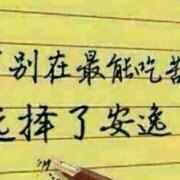 别在最能吃苦
选择了安逸